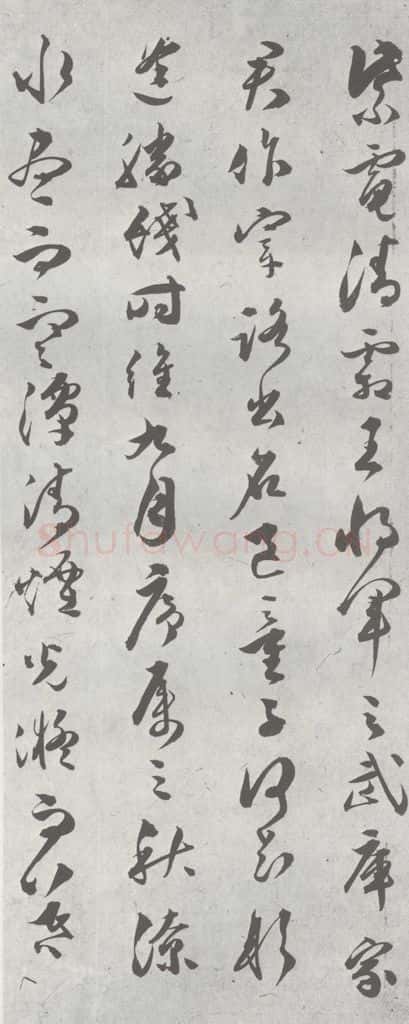 紫電清霜王將軍之武庫家
君作宰路出名區童子何知躬
逢勝餞時維九月序屬三秋潦
水盡而寒潭清煙光凝而
Shufawang.CN